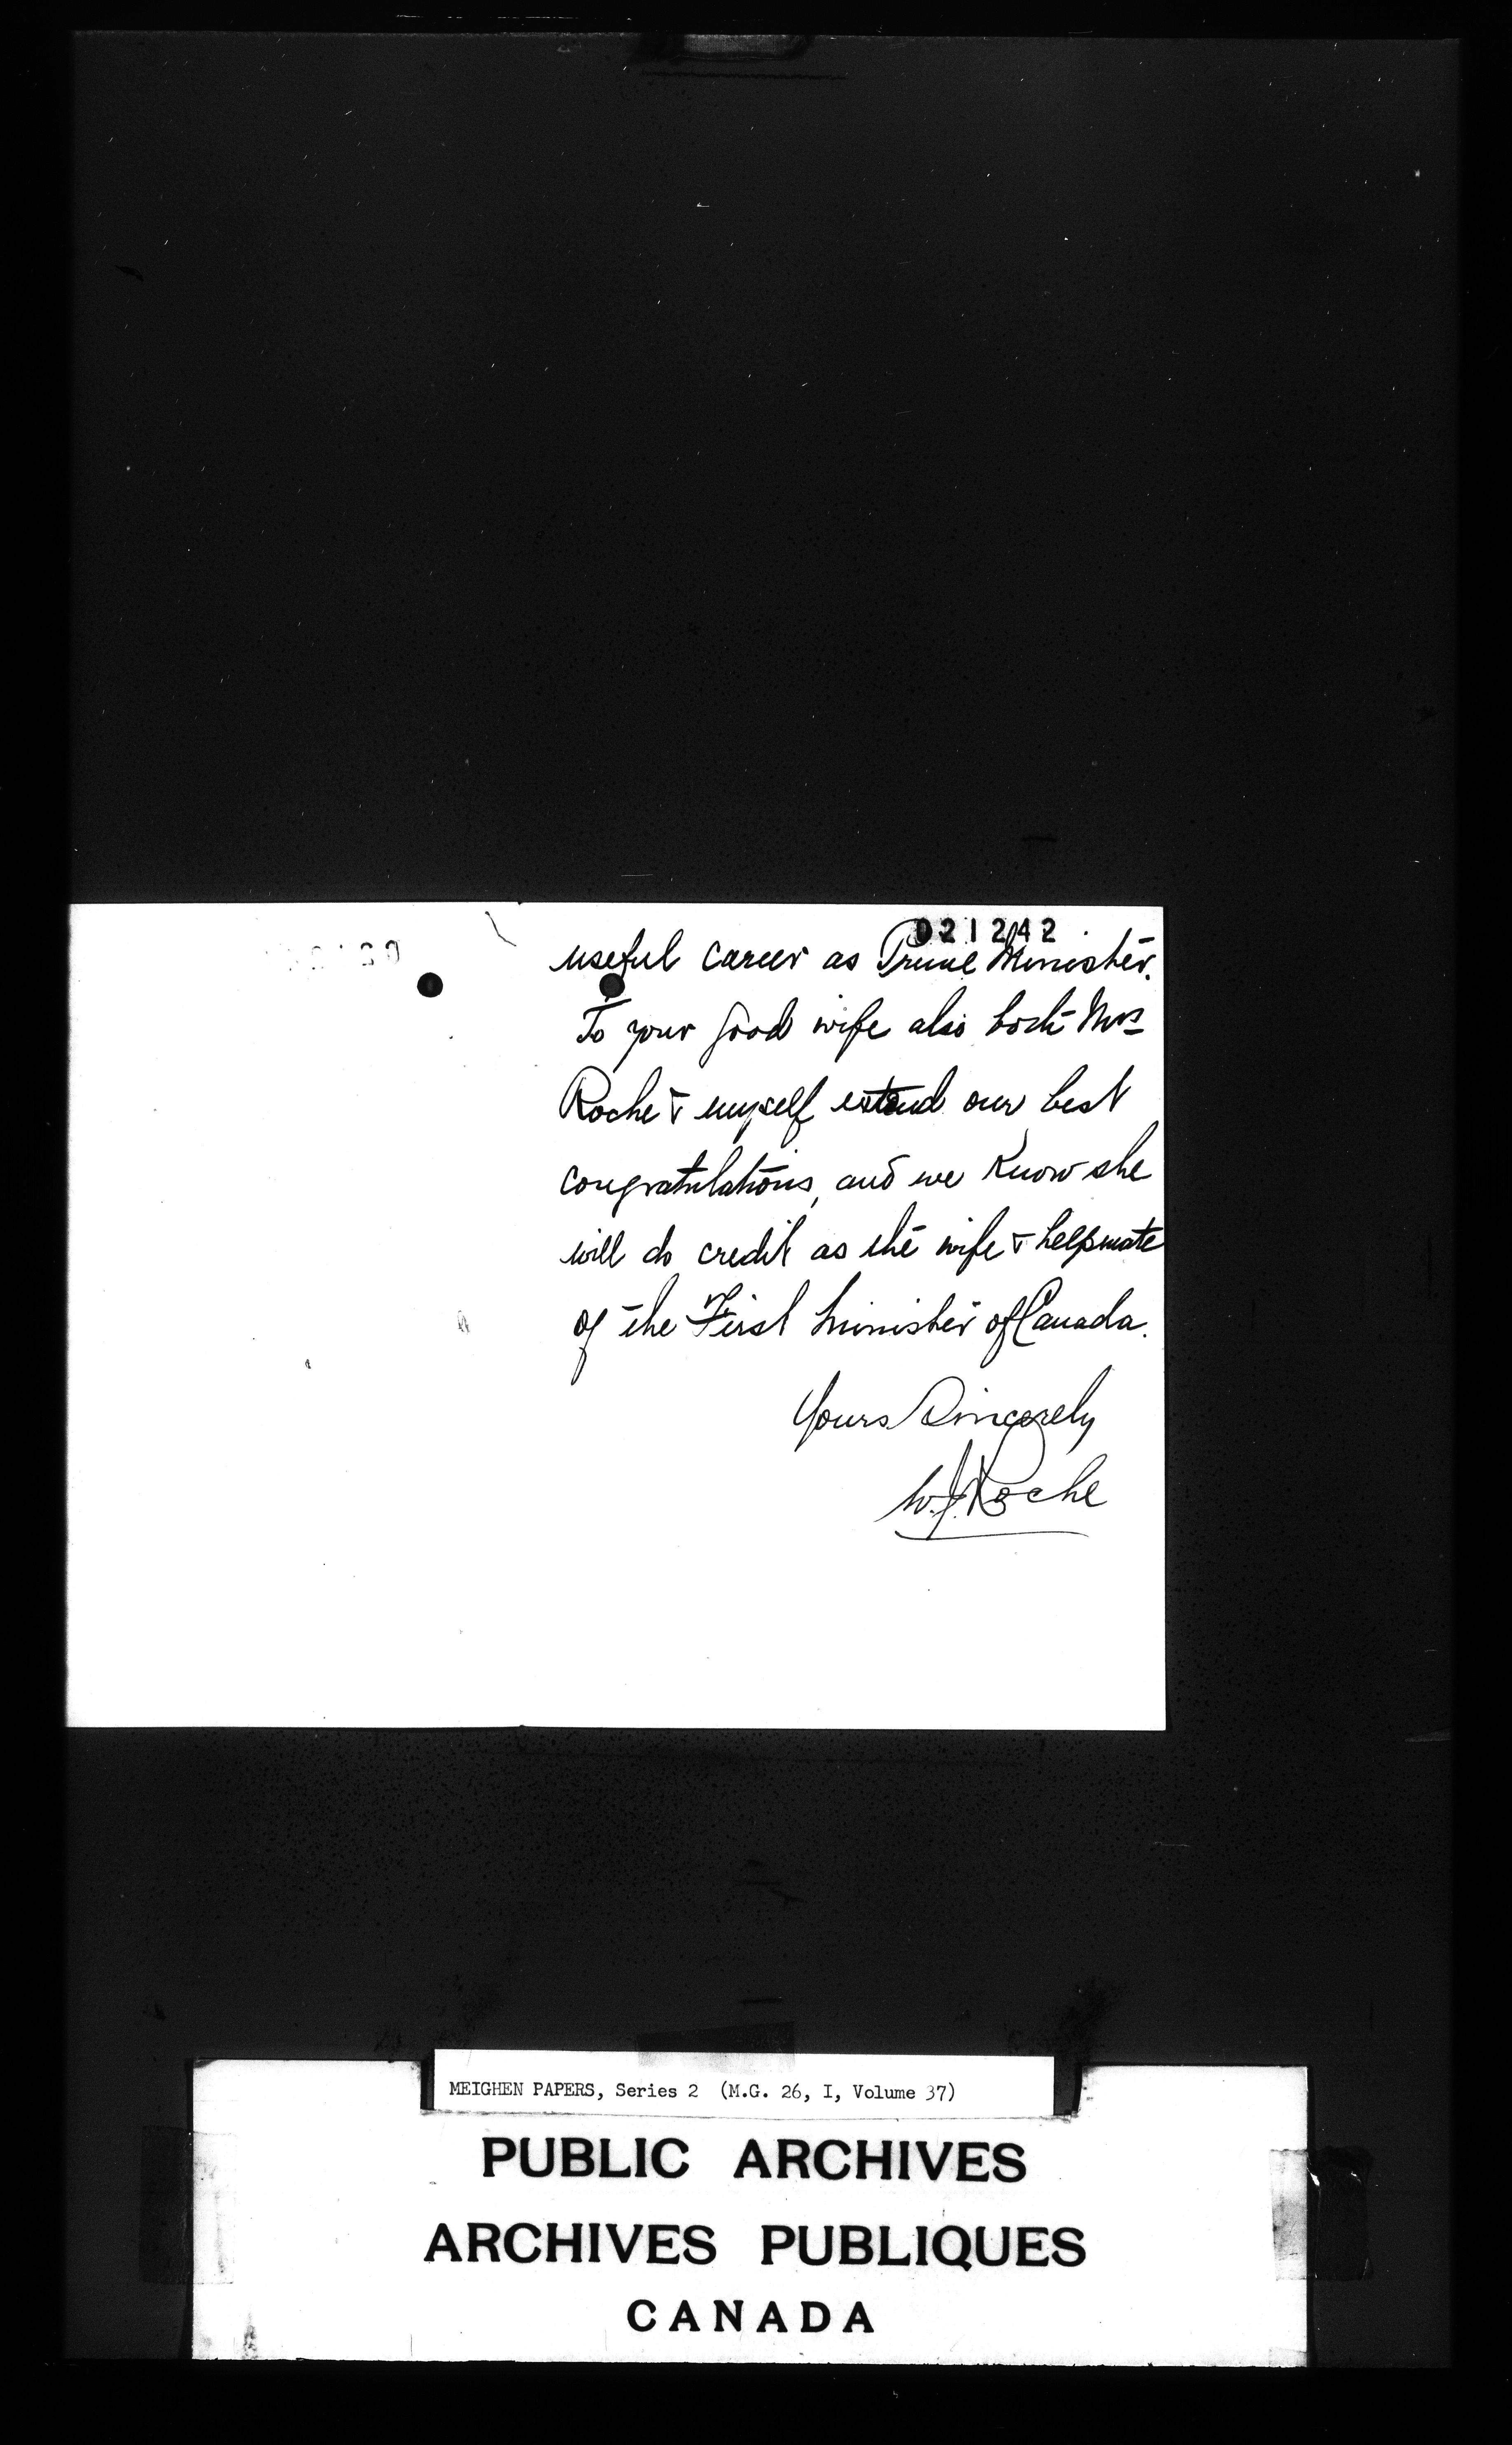 021242
useful career as Prime Minister.
To your good wife also both Mrs
Roche & myself extend our best
congratulations, and we know she
will do credit as the wife & helpmate
of the First Minister of Canada.
Yours Sincerely
W.J. Roche
MEIGHEN PAPERS, Series 2 (M.G. 26, I, Volume 37)
PUBLIC ARCHIVES
ARCHIVES PUBLIQUES
CANADA